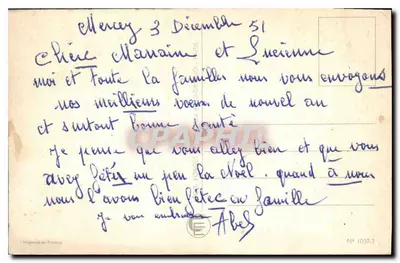 Mercey 3 Décembre 51
Chère Marraine et Lucienne
moi et toute la familles nous vous envoyons
nos meilleurs voeux de nouvel an
et surtout bonne santé
Je pense que vous allez bien et que vous
avez fétés un peu la Noël. quand à nous
nous l'avons bien fétée en famille
Je vous embrasse Abel
CPAPHIL
Nº 1032-3